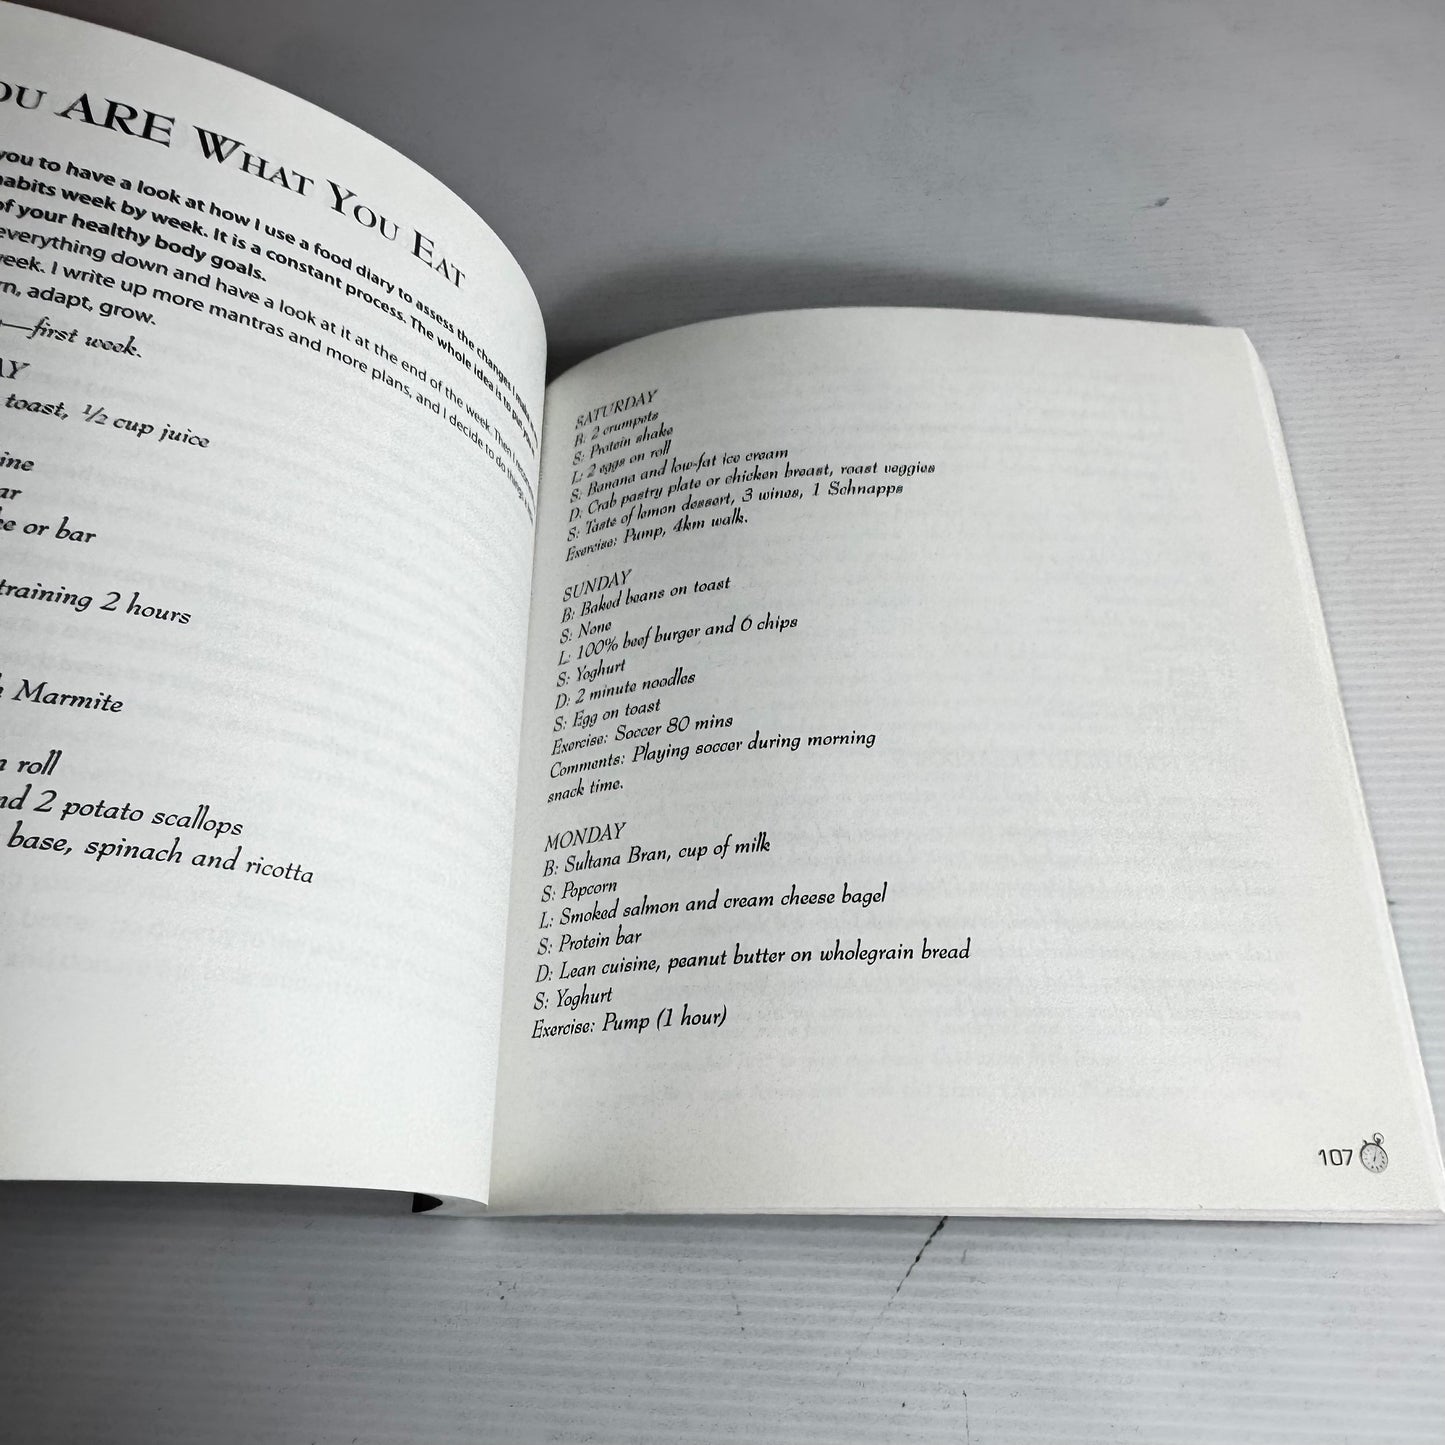 OU ARE WHAT YOU EAT
you to have a look at how I use a food diary to assess the changes I make
habits week by week. It is a constant process. The whole idea is to put you
of your healthy body goals.
everything down and have a look at it at the end of the week. Then I
week. I write up more mantras and more plans, and I decide to do things
rn, adapt, grow.
—first week.
AY
toast, ½ cup juice
ine
ar
ke or bar
training 2 hours
h Marmite
n roll
nd 2 potato scallops
base, spinach and ricotta
SATURDAY
B: 2 crumpets
S: Protein shake
L: 2 eggs on roll
S: Banana and low-fat ice cream
D: Crab pastry plate or chicken breast, roast veggies
S: Taste of lemon dessert, 3 wines, 1 Schnapps
Exercise: Pump, 4km walk.
SUNDAY
B: Baked beans on toast
S: None
L: 100% beef burger and 6 chips
S: Yoghurt
D: 2 minute noodles
S: Egg on toast
Exercise: Soccer 80 mins
Comments: Playing soccer during morning
snack time.
MONDAY
B: Sultana Bran, cup of milk
S: Popcorn
L: Smoked salmon and cream cheese bagel
S: Protein bar
D: Lean cuisine, peanut butter on wholegrain bread
S: Yoghurt
Exercise: Pump (1 hour)
107